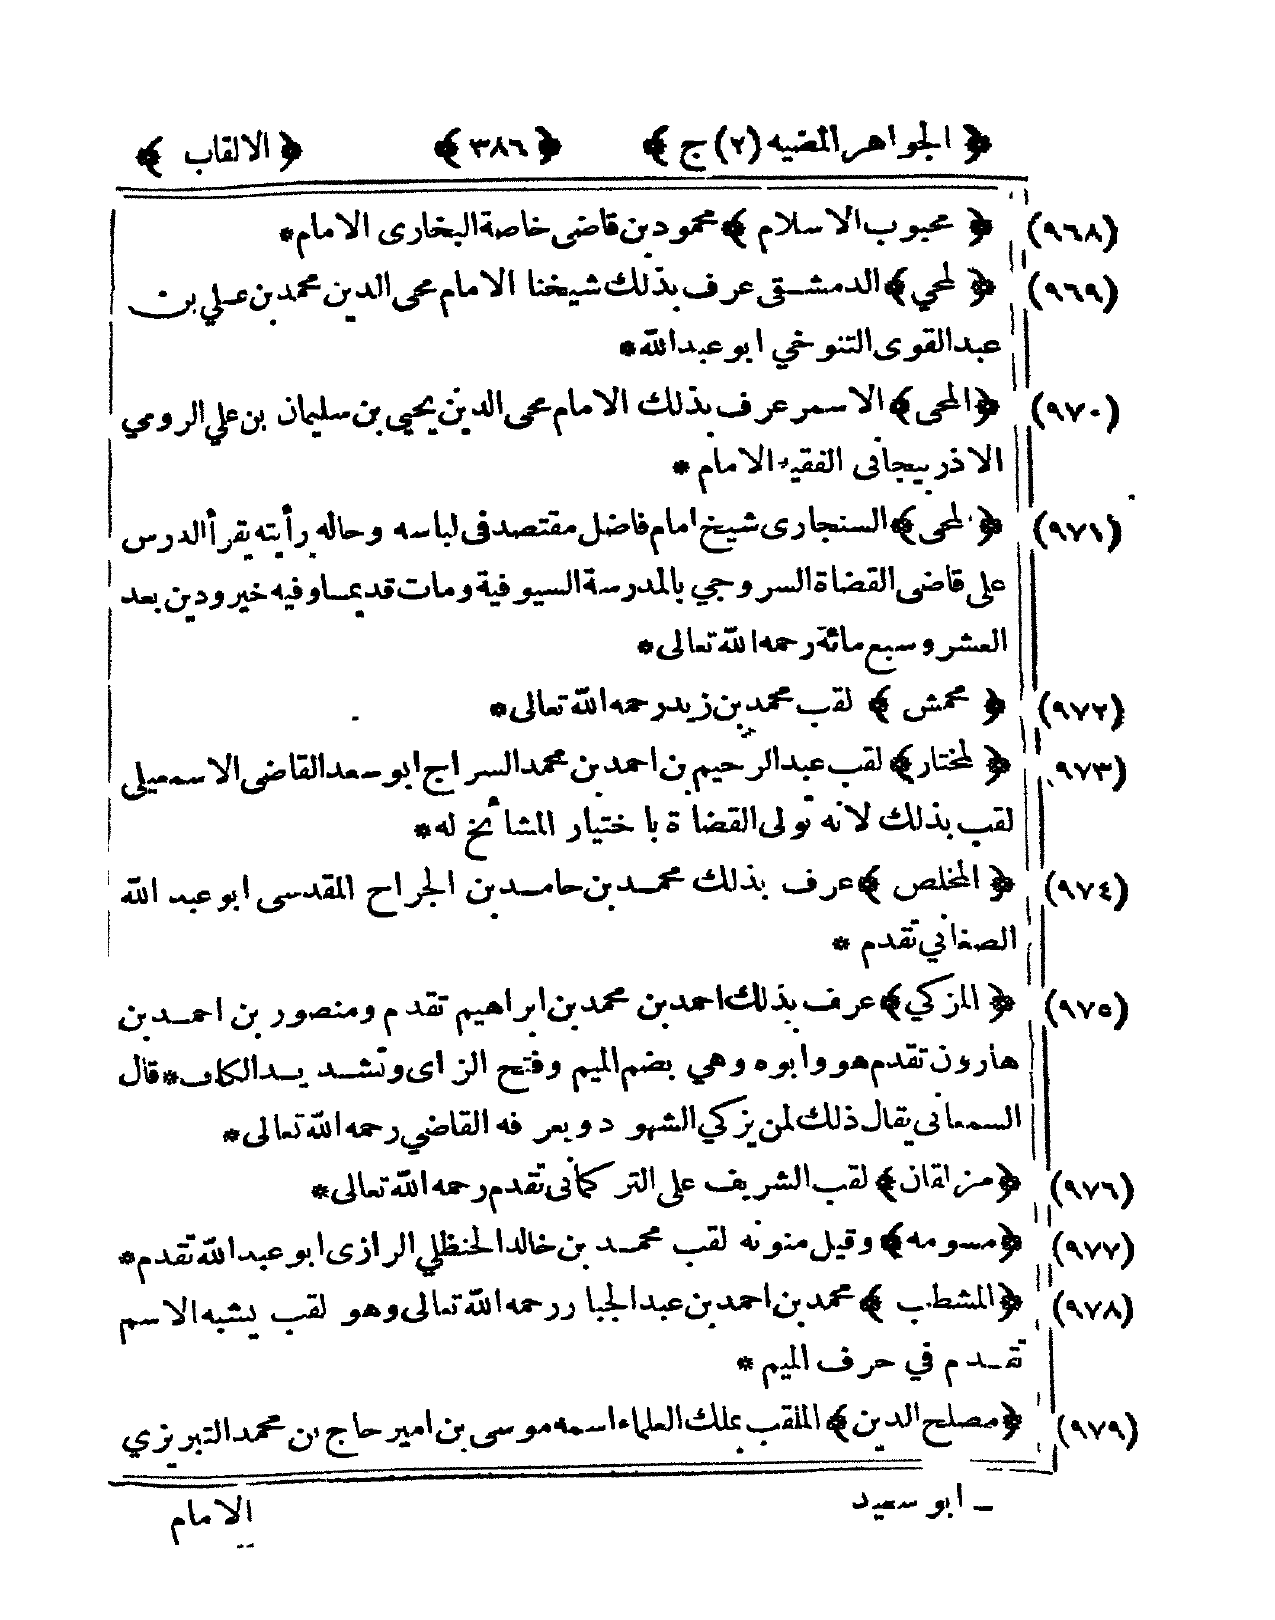 ﴿ الجواهر المضيه (٢) ج ﴾ ﴿ ٣٨٦ ﴾ ﴿ الالقاب ﴾
(٩٦٨) ﴿ محبوب الاسلام ﴾ محمود بن قاضى خاصة البخارى الامام*
(٩٦٩) ﴿ لمحي ﴾ الدمشقى عرف بذلك شيخنا الامام محى الدين محمد بن علي بن
عبد القوى التنوخي ابو عبد الله*
(٩٧٠) ﴿ المحى ﴾ الاسمر عرف بذلك الامام محى الدين يحيى بن سليمان بن علي الرومي
الاذربيجانى الفقيه الامام *
(٩٧١) ﴿ لمحى ﴾ السنجارى شيخ امام فاضل مقتصد فى لباسه وحاله رأيته يقرأ الدرس
على قاضى القضاة السروجي بالمدرسة السيوفية ومات قديما وفيه خير ودين بعد
العشر وسبع مائة رحمه الله تعالى*
(٩٧٢) ﴿ محمش ﴾ لقب محمد بن زيد رحمه الله تعالى*
(٩٧٣) ﴿ لمختار ﴾ لقب عبد الرحيم بن احمد بن محمد السراج ابو سعد القاضى الاسمعيلى
لقب بذلك لانه تولى القضاة باختيار المشائخ له*
(٩٧٤) ﴿ المخلص ﴾ عرف بذلك محمد بن حامد بن الجراح المقدسى ابو عبد الله
الصغانى تقدم *
(٩٧٥) ﴿ المزكي ﴾ عرف بذلك احمد بن محمد بن ابراهيم تقدم ومنصور بن احمد بن
هارون تقدم هو وابوه وهي بضم الميم وفتح الزاى وتشديد الكاف*قال
السمعانى يقال ذلك لمن يزكي الشهود ويعرفه القاضي رحمه الله تعالى*
(٩٧٦) ﴿ مزلقان ﴾ لقب الشريف على التركمانى تقدم رحمه الله تعالى*
(٩٧٧) ﴿ مسومه ﴾ وقيل منونه لقب محمد بن خالد الحنظلي الرازى ابو عبد الله تقدم*
(٩٧٨) ﴿ المشطب ﴾ محمد بن احمد بن عبد الجبار رحمه الله تعالى وهو لقب يشبه الاسم
تقدم في حرف الميم *
(٩٧٩) ﴿ مصلح الدين ﴾ الملقب بملك العلماء اسمه موسى بن امير حاج بن محمد التبريزي
ـ ابو سعيد
الامام